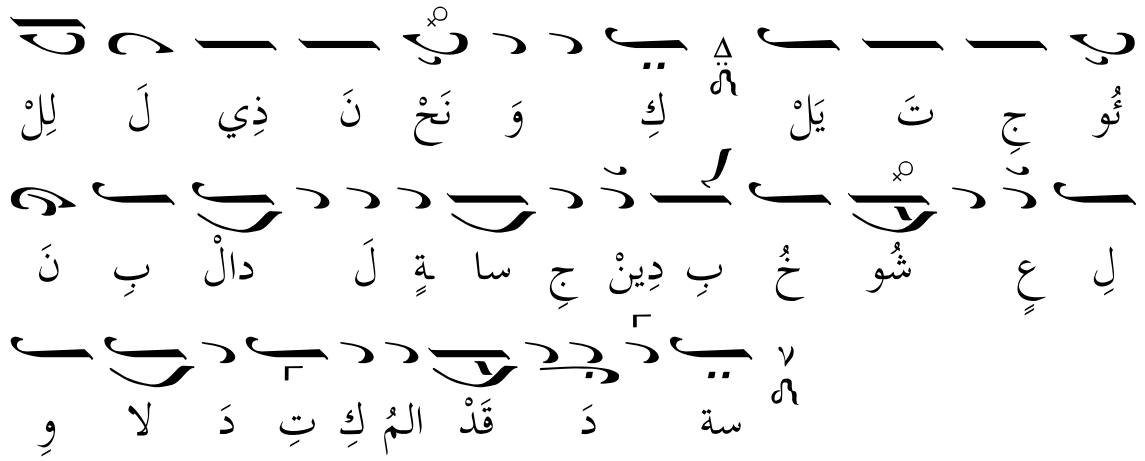 لِلْ لَ ذِي نَ نَحْ وَ كِ يَلْ تَ جِ ئُو
نَ بِ دالْ لَ ـةٍ سا جِ دِينْ بِ خُ شُو عٍ لِ
وِ لا دَ تِ كِ المُ قَدْ دَ سة